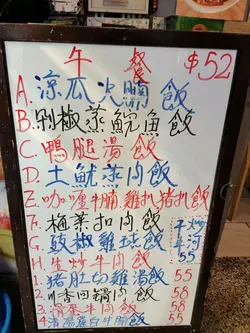 午 餐 $52
A. 涼瓜火腩飯
B. 剁椒蒸鯇魚飯
C. 鴨腿湯飯
D. 土魷蒸肉飯
E. 咖喱牛腩,雞扒,猪扒飯
F. 梅菜扣肉飯
G. 豉椒雞球飯
H. 生炒牛肉飯
干炒
牛河
55
1. 猪肚切雞湯飯 55
2. 川香回鍋肉飯 58
3. 滑蛋牛肉飯 58
4. 蛋白牛肉飯 55